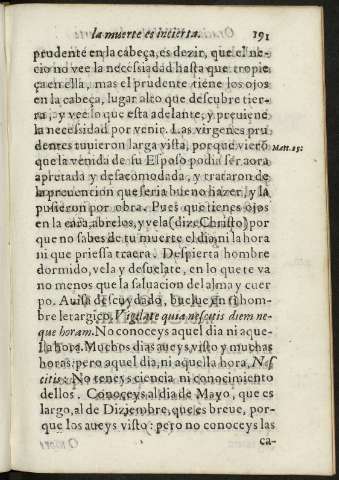 la muerte es incierta. 191
prudente en la cabeça, es dezir, que el ne-
cio no vee la necessidad hasta que tropie
ça en ella, mas el prudente tiene los ojos
en la cabeça, lugar alto que descubre tier-
ra, y vee lo que esta adelante, y preuiene
la necessidad por venir. Las virgenes pru
dentes tuuieron larga vista, porque vierõ
Matt. 25:
que la venida de su Esposo podia ser aora
apretada y desacomodada, y trataron de
la preuencion que seria bueno hazer, y la
pusieron por obra. Pues que tienes ojos
en la cara, abrelos, y vela (dize Christo) por
que no sabes de tu muerte el dia, ni la hora
ni que priessa traera. Despierta hombre
dormido, vela y desuelate, en lo que te va
no menos que la saluacion del alma y cuer
po. Auisa descuydado, buelue en ti hom-
bre letargico. Vigilate quia nescitis diem ne-
que horam. No conoceys aquel dia ni aque-
lla hora. Muchos dias aueys visto y muchas
horas: pero aquel dia, ni aquella hora, Nes
citis: No teneys ciencia ni conocimiento
dellos. Conoceys al dia de Mayo, que es
largo, al de Diziembre, que es breue, por-
que los aueys visto: pero no conoceys las
ca-